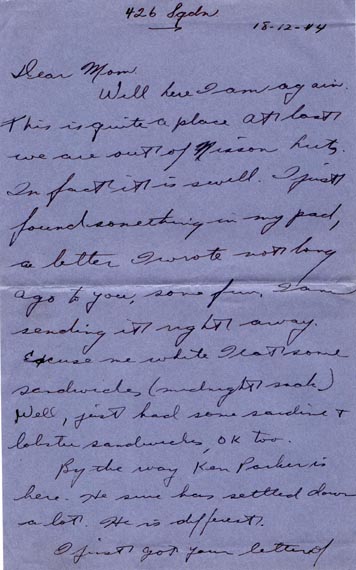 426 Sqdn
18-12-44
Dear Mom
Well here I am again.
This is quite a place at last
we are out of Nisson huts.
In fact it is swell. I just
found something in my pad,
a letter I wrote not long
ago to you, some fun, I am
sending it right away.
Excuse me while I eat some
sandwiches, (midnight snak)
Well, just had some sardine +
lobster sandwiches, OK too.
By the way Ken Parker is
here. He sure has settled down
a lot. He is different.
I just got your letter of